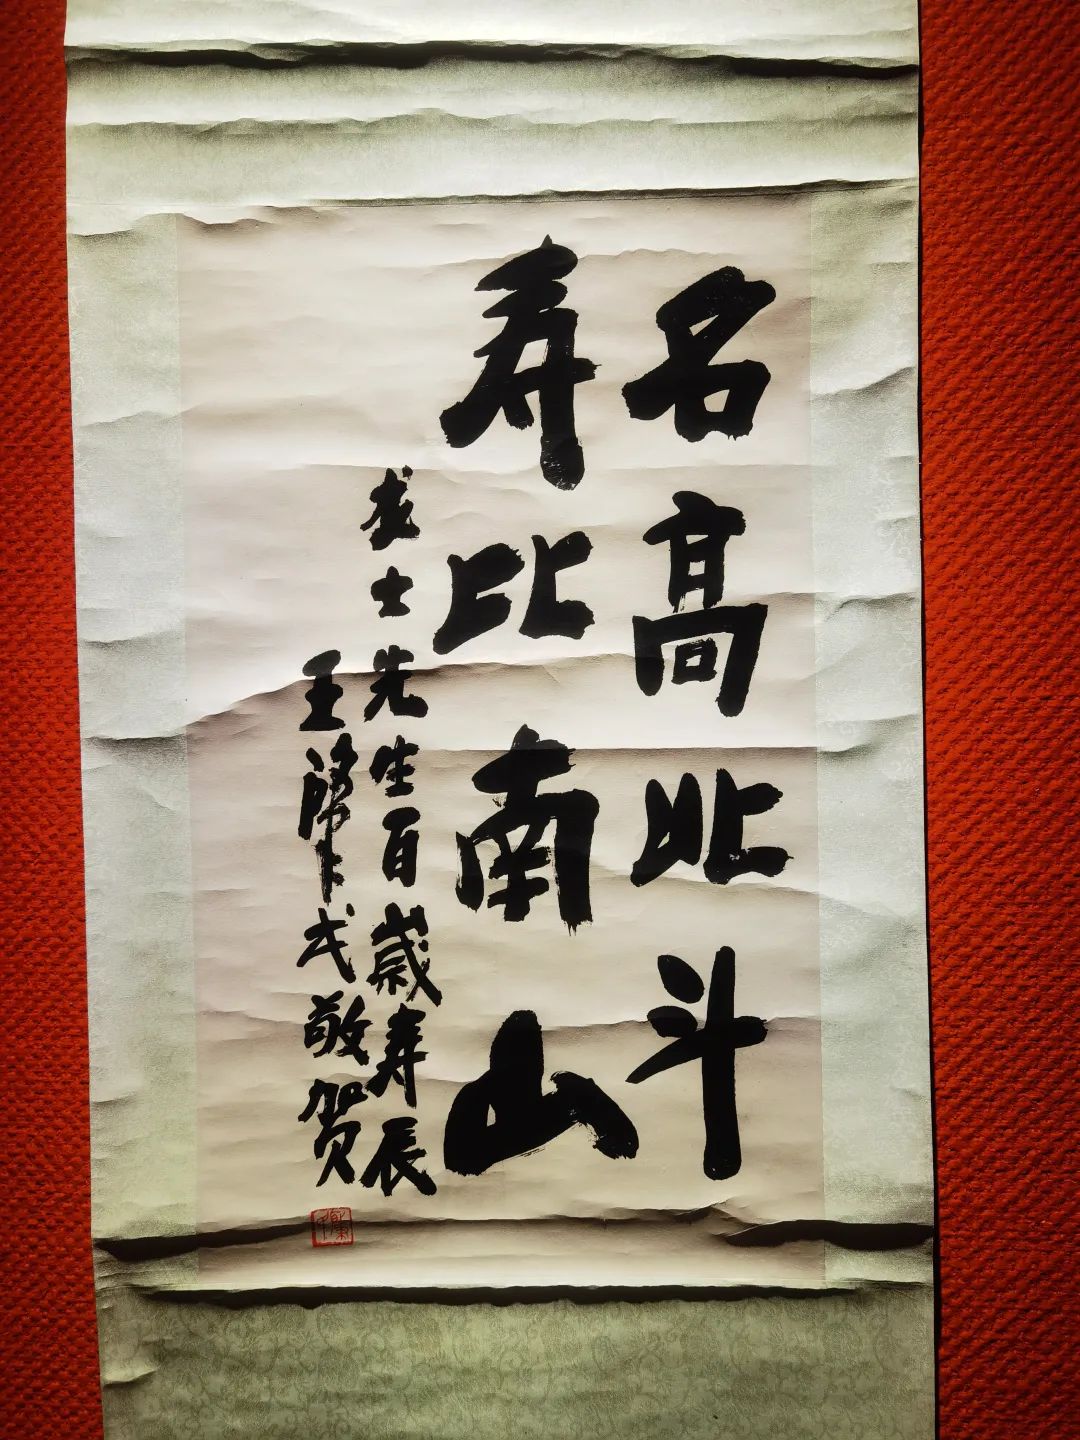 名高北斗
寿比南山
士先生百歲寿辰
王敬贺